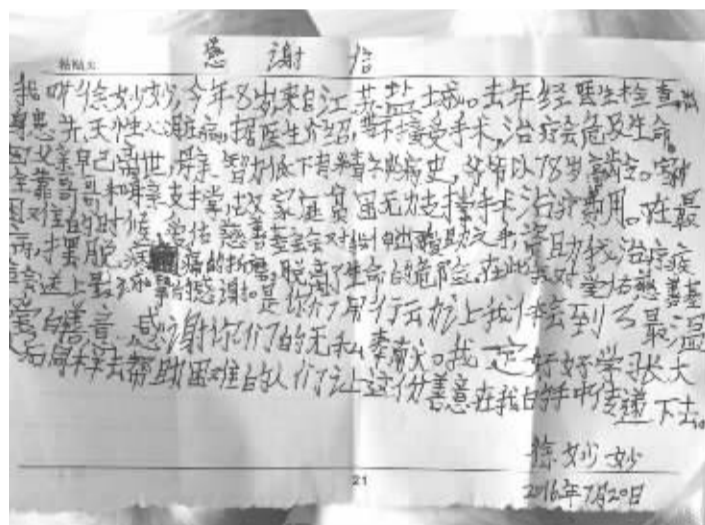 粘贴处
感谢信
我叫徐妙妙,今年8岁,来自江苏盐城。去年经医生检查,出
身患先天性心脏病,据医生介绍,若不接受手术,治疗会危及生命。
因父亲早已离世,母亲智力低下有精神病史,爷爷以78岁高龄。家中
全靠哥哥和母亲支撑,故家庭贫困无力支撑手术治疗费用。在最
困难的时候爱佑慈善基金会对我伸出援助之手,资助我治疗疾
病,摆脱病痛的折磨,脱离了生命的危险。在此我对爱佑慈善基
金会送上最诚挚的感谢。是你们用行动让我体会到了最温
的善意,感谢你们的无私奉献。我一定好好学习长大
后同样去帮助困难的人们让这份善意在我的手中传递下去。
徐妙妙
21
2016年7月20日